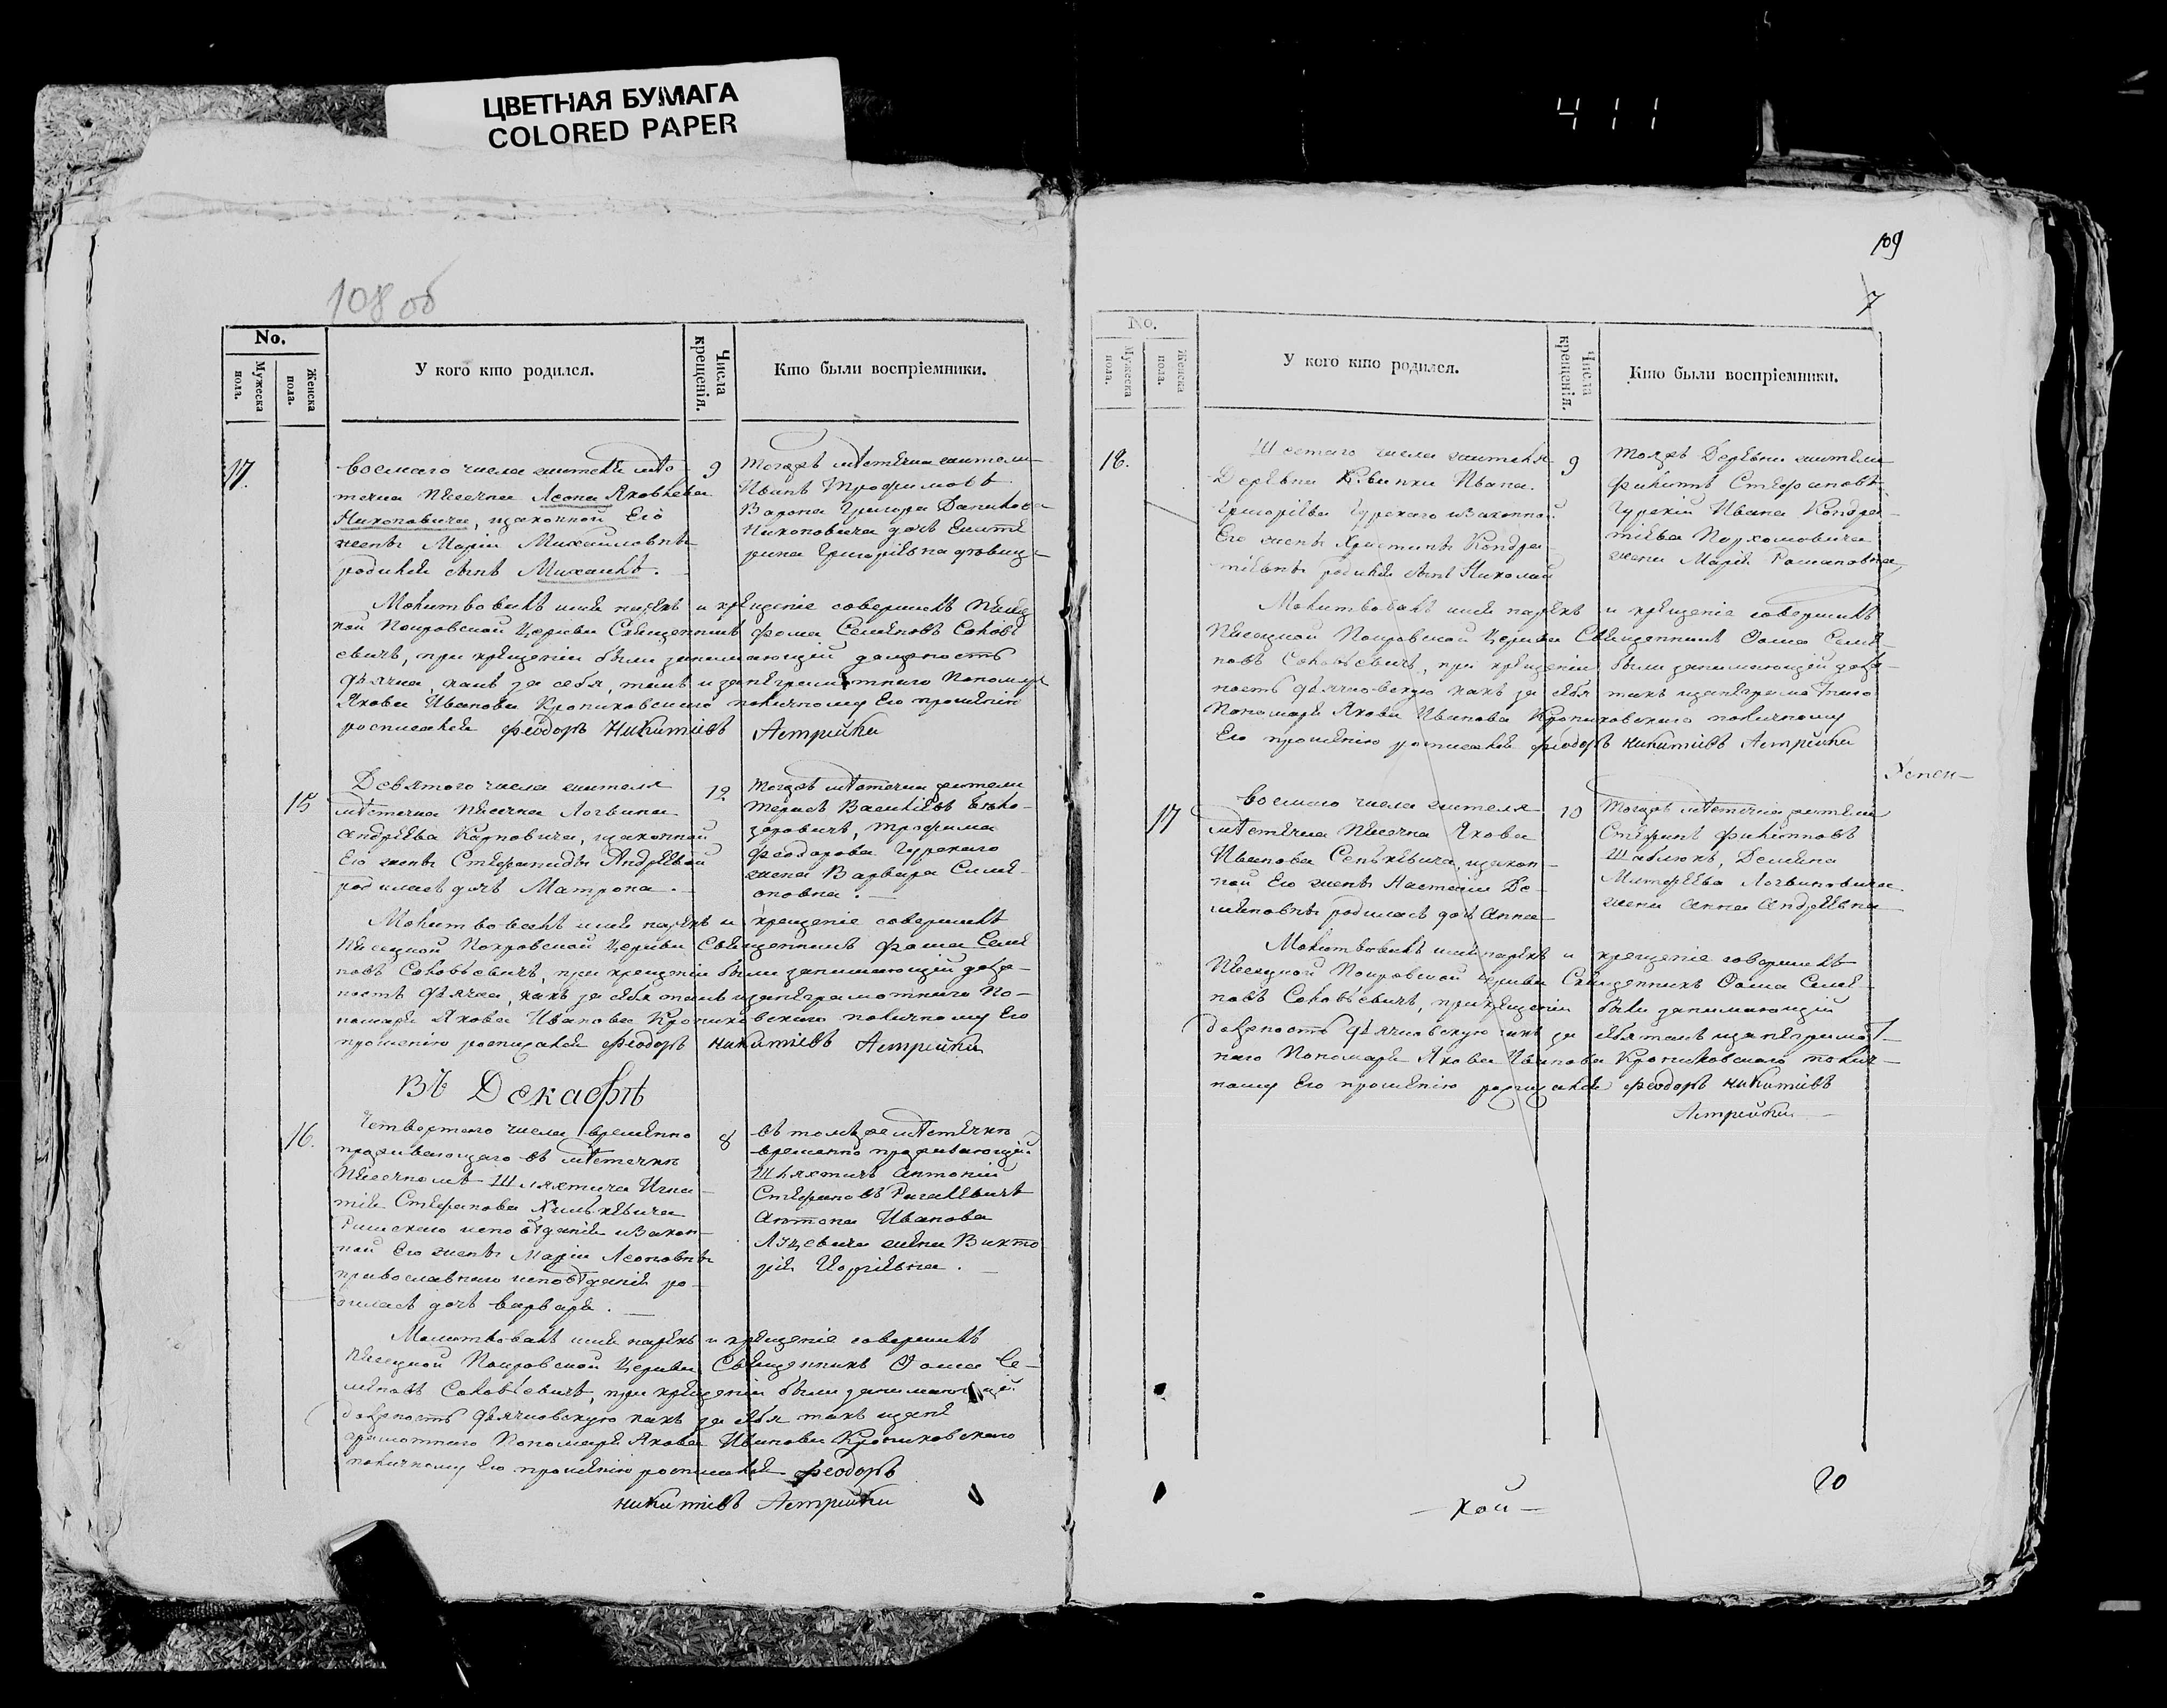 ЦВЕТНАЯ БУМАГА
COLORED PAPER
411
108 об
No.
Мужеска пола.
Женска пола.
У кого кто родился.
Числа крещенія.
Кто были воспріемники.
17.
восмаго числа жителя мѣс
течка Песечна Леона Яковлева
Никоновича, изаконной Его
жены Маріи Михаиловны
родился сынъ Михаилъ.
9
тогожъ мѣстечка жители
Иванъ Трофимовъ
Григора Данилова
Никоновича дочь
рина Григоріевна девица
Молитвовалъ имя нарекъ и крещеніе совершилъ Песец
кой Покровской Церкви Священникъ Фома Семеновъ Соловь
евичъ, при крещеніи были занимающій должность
дьячка, какъ за себя, такъ и занеграмотнаго Пономаря
Якова Иванова Кропиковскаго поличному Его прошенію
росписался Феодоръ Никитіевъ Астрейки
15
Девятого числа жителя
мѣстечка Песечна Логвина
Андреева Карповича, изаконной
Его жены Стефаниды Андреевой
родилась дочь Матрона.
12
тогожъ мѣстечка жители
Василіевъ Бѣло-
заровичъ, Трофима
Феодорова Гурскаго
жена Варвара Симе-
оновна.
Молитвовалъ имя нарекъ и крещеніе совершилъ
Песецкой Покровской Церкви Священникъ Фома Семе
новъ Соловьевичъ, при крещеніи были занимающій долж-
ность дьячка, какъ за себя такъ изанеграмотнаго По-
номаря Якова Иванова Кропиковскаго поличному Его
прошенію росписался Феодоръ Никитіевъ Астрейки
Въ Декабрѣ
16.
Четвертого числа временно
проживающаго въ мѣстечкѣ
Песечномъ Шляхтича Игна-
тія Стефанова
Римскаго исповѣданія изакон-
ной Его жены Маріи Леоновны
православнаго исповѣданія ро-
дилась дочь Варвара.
8
въ томъже мѣстечкѣ
временно проживающій
Шляхтичъ Антоній
Стефановъ
Антона Иванова
жена Викто
рія
Молитвовалъ имя нарекъ и крещеніе совершилъ
Песецкой Покровской Церкви Священникъ Фома Се-
меновъ Соловьевичъ, при крещеніи были занимающій
должность дьячковскую какъ за себя такъ изане
грамотнаго Пономаря Якова Иванова Кропиковскаго
поличному Его прошенію росписался Феодоръ
Никитіевъ Астрейки
109
7
No.
Мужеска пола.
Женска пола.
У кого кто родился.
Числа крещенія.
Кто были воспріемники.
18.
Шестаго числа жителя
Деревни Ивана
Григоріева Гурскаго изаконной
Его жены Христины Кондра-
тіевны родился сынъ Николай
9
тояжъ Деревни жители
Филиппъ Стефановъ
Гурскій Ивана Кондра-
тіева Пархомовича
жена Марія Романовна
Молитвовалъ имя нарекъ и крещеніе совершилъ
Песецкой Покровской Церкви Священникъ Фома Семе-
новъ Соловьевичъ, при крещеніи были занимающій долж-
ность дьячковскую какъ за себя такъ изанеграмотнаго
Пономаря Якова Иванова Кропиковскаго поличному
Его прошенію росписался Феодоръ Никитіевъ Астрейки
Успен-
17
восмаго числа жителя
мѣстечка Песечна Якова
Иванова Сенкевича, изакон-
ной Его жены Настасіи Де-
меновны родилась дочь Анна
10
Тогожъ мѣстечка жители
Стефанъ Филиповъ
Шаблюкъ, Демена
Матфеева Логвиновича
жена Анна Андреевна
Молитвовалъ имя нарекъ и крещеніе совершилъ
Песецкой Покровской Церкви Священникъ Фома Семе-
новъ Соловьевичъ, прикрещеніи были занимающій
должность дьячковскую какъ за себя такъ изанеграмот-
наго Пономаря Якова Иванова Кропиковскаго полич-
ному Его прошенію росписался Феодоръ Никитіевъ
Астрейки
— кой —
20